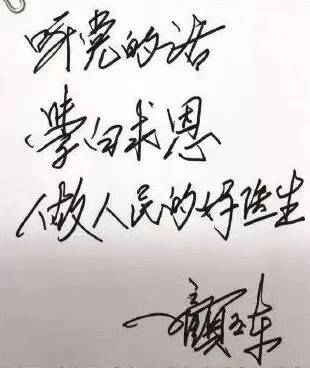 听党的话
学白求恩
做人民的好医生
顾玉东